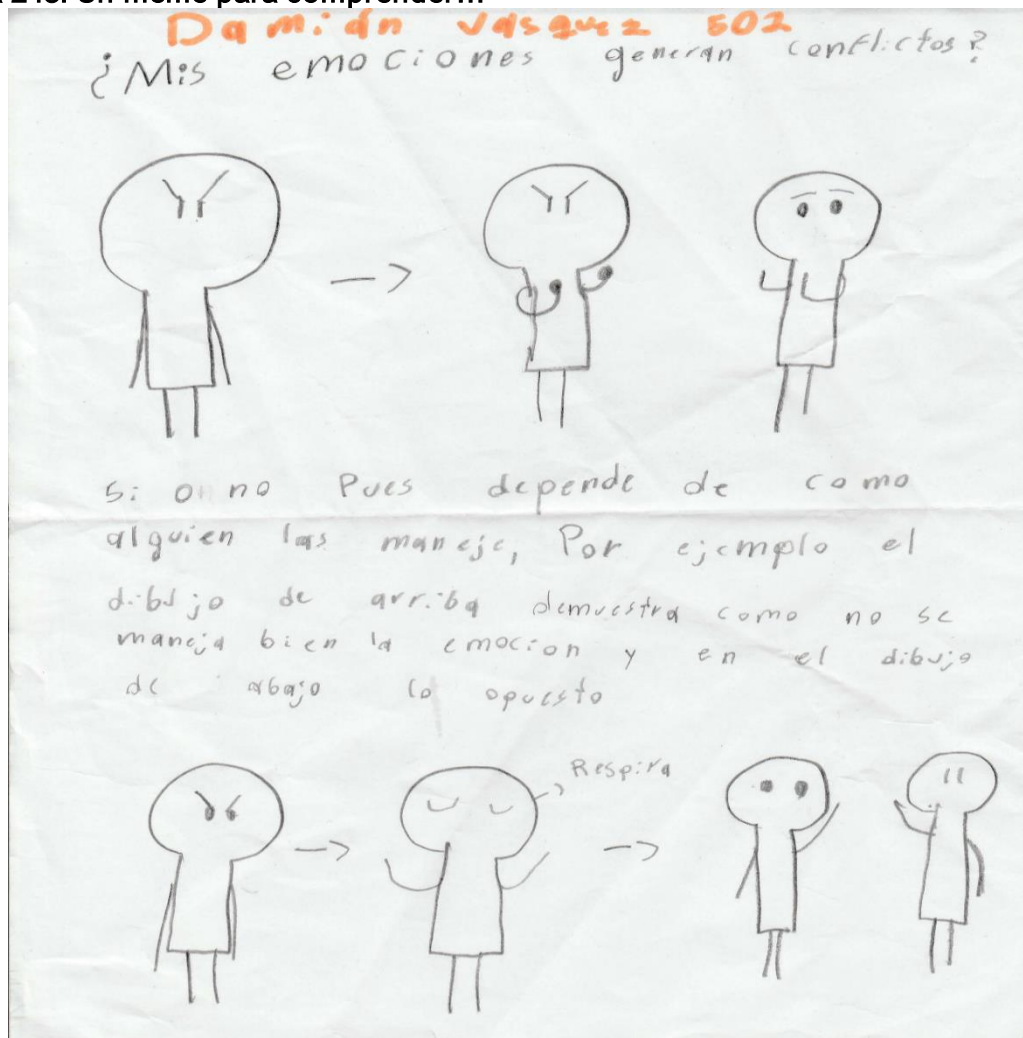 Un meme para comprender...
Damián Vasquez 502
¿Mis emociones generan conflictos?
Si o no Pues depende de como
alguien las maneje, Por ejemplo el
dibujo de arriba demuestra como no se
maneja bien la emocion y en el dibujo
de abajo lo opuesto
Respira